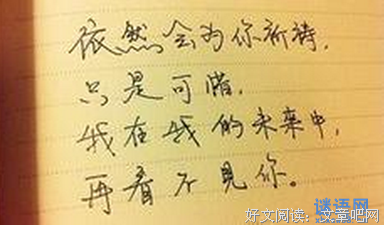 依然会为你祈祷，
只是可惜，
我在我的未来中，
再看不見你。
谜语网
好文阅读：文章吧网